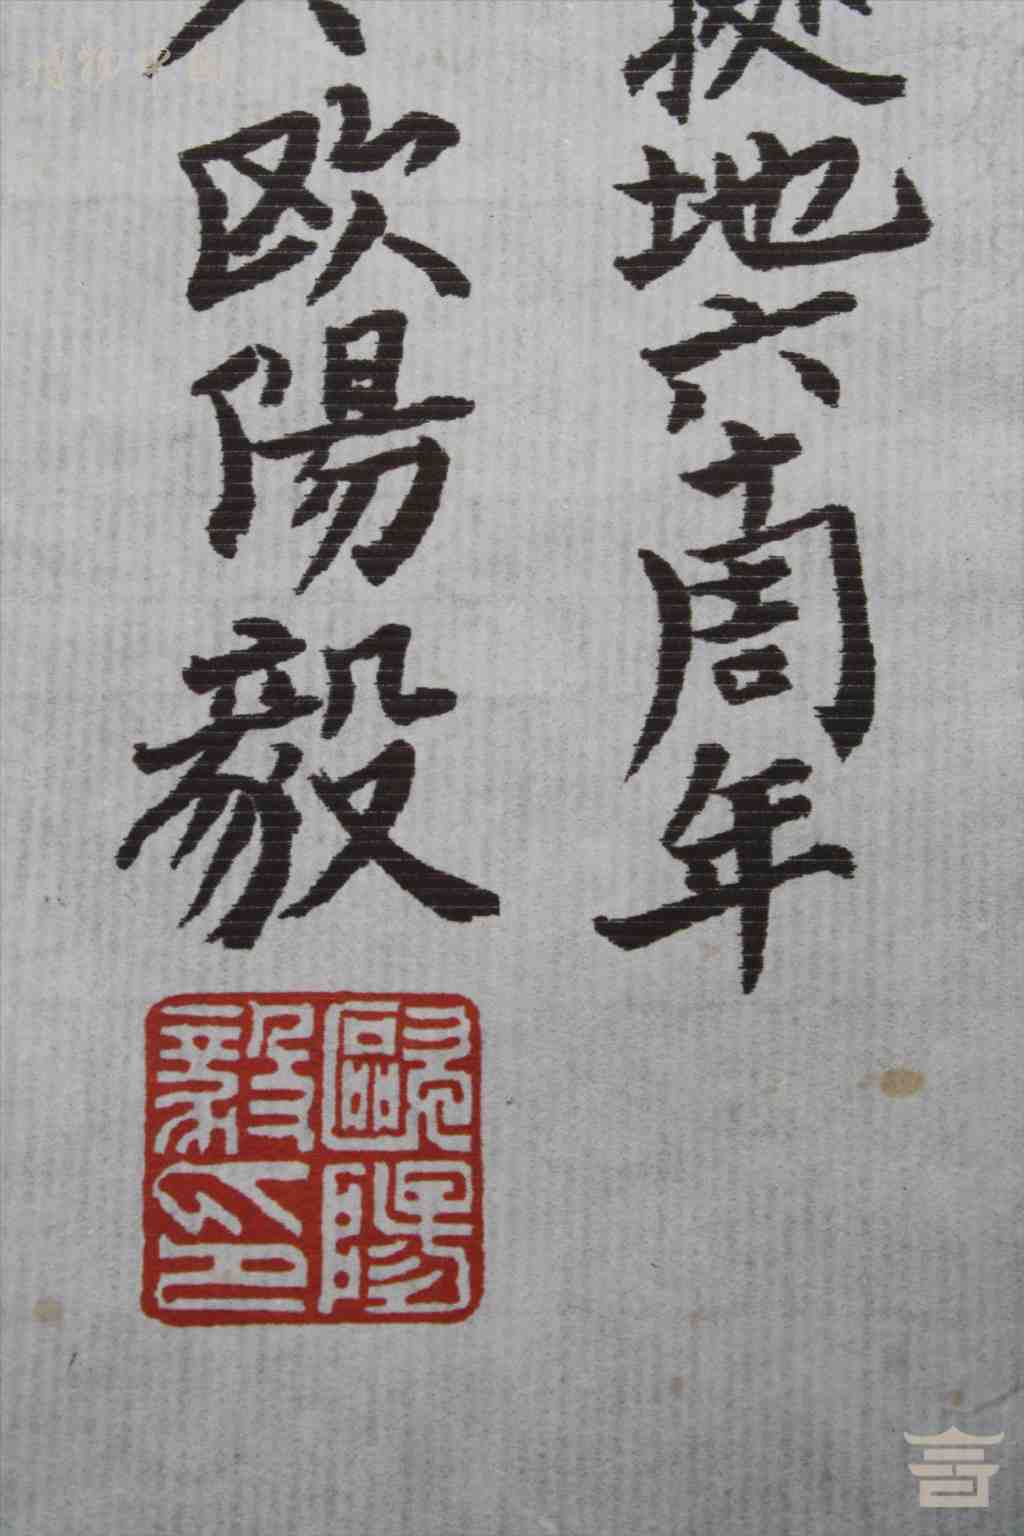 地六十周年
欧陽毅
歐陽毅印